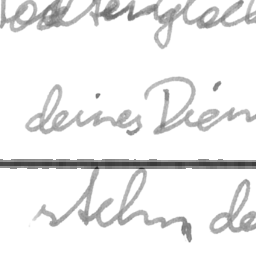 Todtenglock
deines Dien
stehn, de